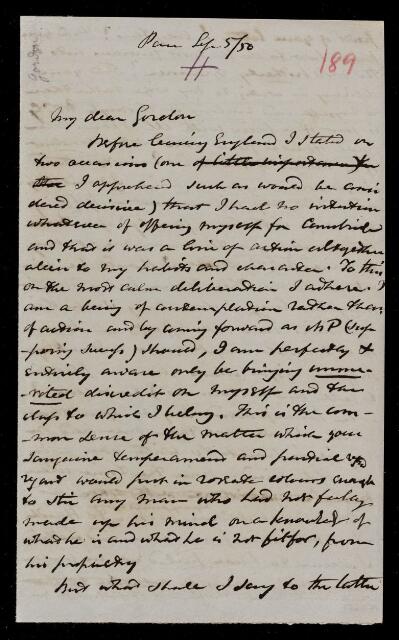 Sep 5/50
189
Gordon
My dear Gordon
Before leaving England I stated on
two occasions (one of little importance
I apprehend such as would be consi
dered decisive) that I had no intention
whatever of offering myself for
and that it was a line of action altogether
alien to my habits and character. To this
on the most calm deliberation I adhere. I
am a being of contemplation rather than
of action and by coming forward as MP (sup
posing success) should, I am perfectly &
entirely aware only be bringing unme-
-rited discredit on myself and the
class to which I belong. This is the com-
-mon sense of the matter which your
sanguine temperament and partial
regard would put in roseate colours enough
to stir any man who had not fully
made up his mind on a knowledge of
what he is and what he is not fit for, from
his propriety
But what shall I say to the latter